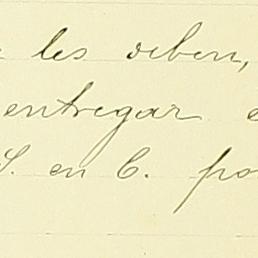 les deben,
entregar
S. en C. po